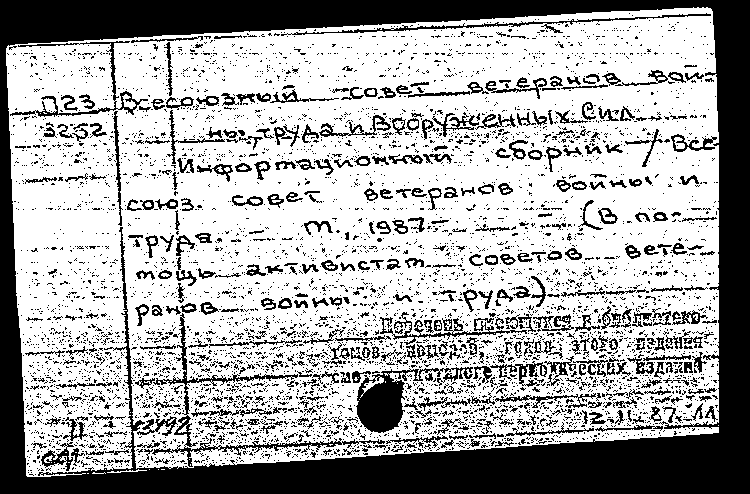 П23 Всесоюзный совет ветеранов вой-
3252 ны, труда и Вооруженных Сил
Информационный сборник / Все-
союз. совет ветеранов войны и
труда. – М., 1987–    – (В по-
мощь активистам советов вете-
ранов войны и труда)
Перечень имеющихся в библиотеке
томов, номеров, годов этого издания
смотри в каталоге периодических изданий
П 12.11.87.